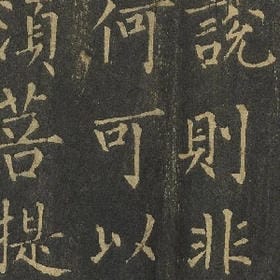 說則非
何可以
須菩提